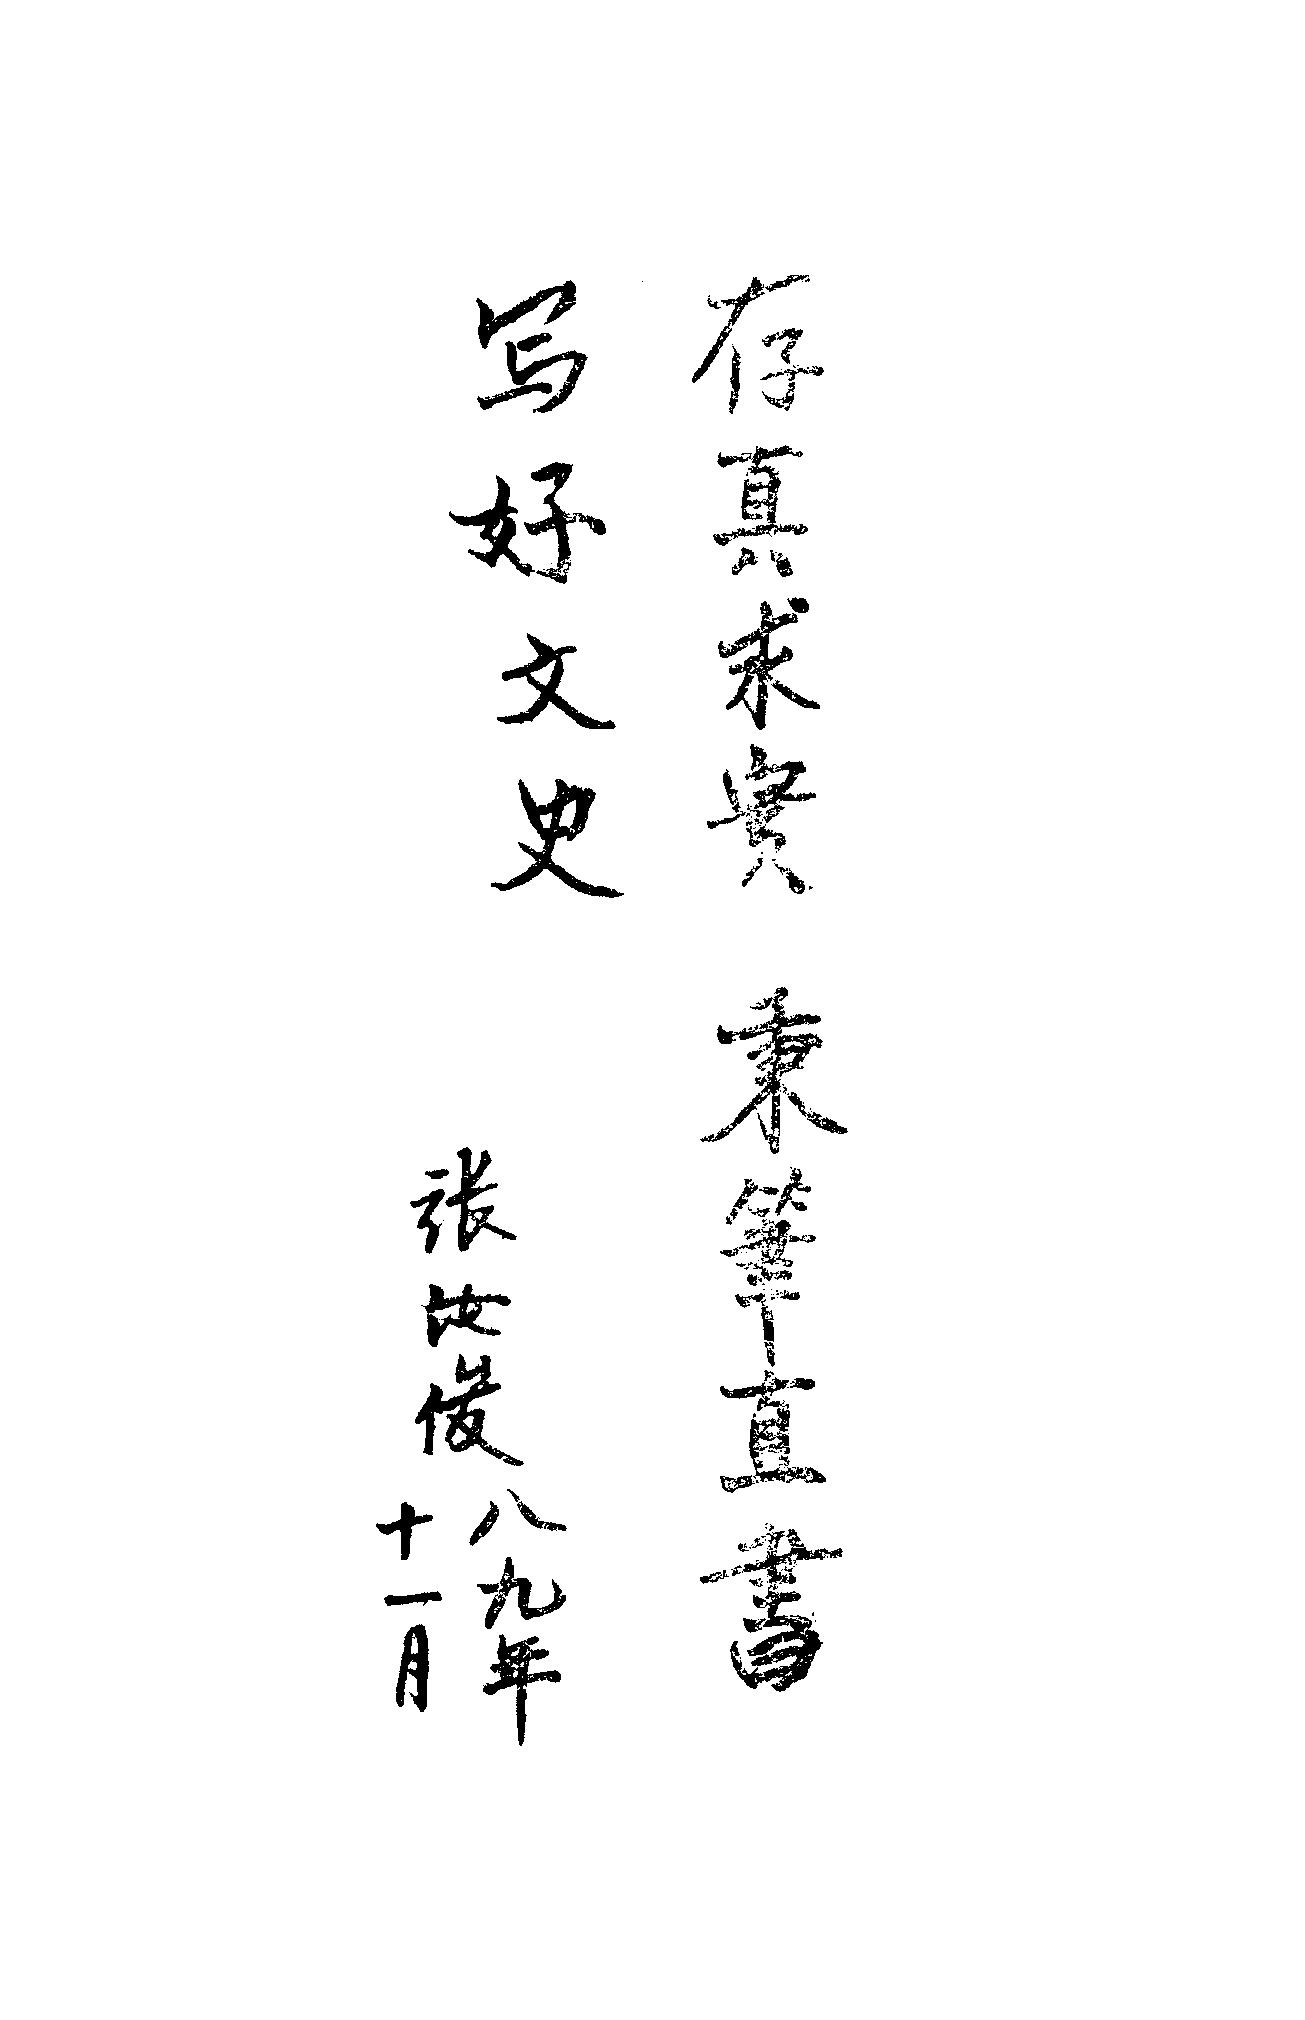 存真求實 秉筆直書
写好文史
張汝俊
八九年
十一月